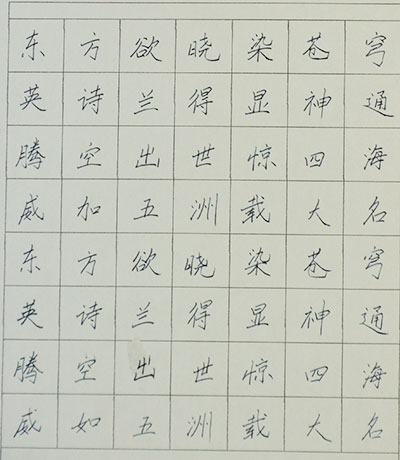 东方欲晓染苍穹
英诗兰得显神通
腾空出世惊四海
威加五洲载大名
东方欲晓染苍穹
英诗兰得显神通
腾空出世惊四海
威如五洲载大名